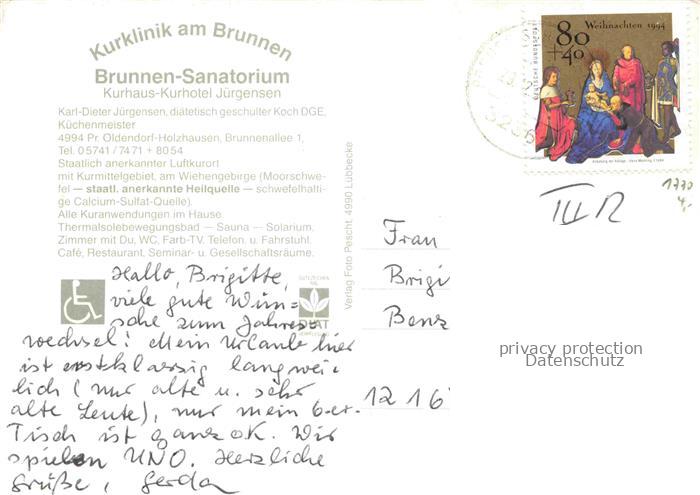 Kurklinik am Brunnen
Brunnen-Sanatorium
Kurhaus-Kurhotel Jürgensen
Karl-Dieter Jürgensen, diätetisch geschulter Koch DGE,
Küchenmeister
4994 Pr. Oldendorf-Holzhausen, Brunnenallee 1,
Tel. 0 5741 / 74 71 + 80 54
Staatlich anerkannter Luftkurort
mit Kurmittelgebiet, am Wiehengebirge (Moorschwe-
fel — staatl. anerkannte Heilquelle — schwefelhalti-
ge Calcium-Sulfat-Quelle).
Alle Kuranwendungen im Hause.
Thermalsolebewegungsbad — Sauna — Solarium.
Zimmer mit Du, WC, Farb-TV, Telefon, u. Fahrstuhl.
Café, Restaurant, Seminar- u. Gesellschaftsräume.
Hallo, Brigitte,
viele gute Wün=
sche zum Jahres=
wechsel! Mein Urlaub hier
ist erstklassig langwei=
lich (nur alte u. sehr
alte Leute), nur mein 6er-
Tisch ist ganz ok. Wir
spielen UNO. Herzliche
Grüße, Gerda
GÜTEZEICHEN
RAL
DIÄT
Verlag Foto Pescht, 4990 Lübbecke
Weihnachten 1994
80
+40
Deutsche Bundespost
Frau
Brigi
Benz
12 16
III R
1770
4,-
privacy protection
Datenschutz